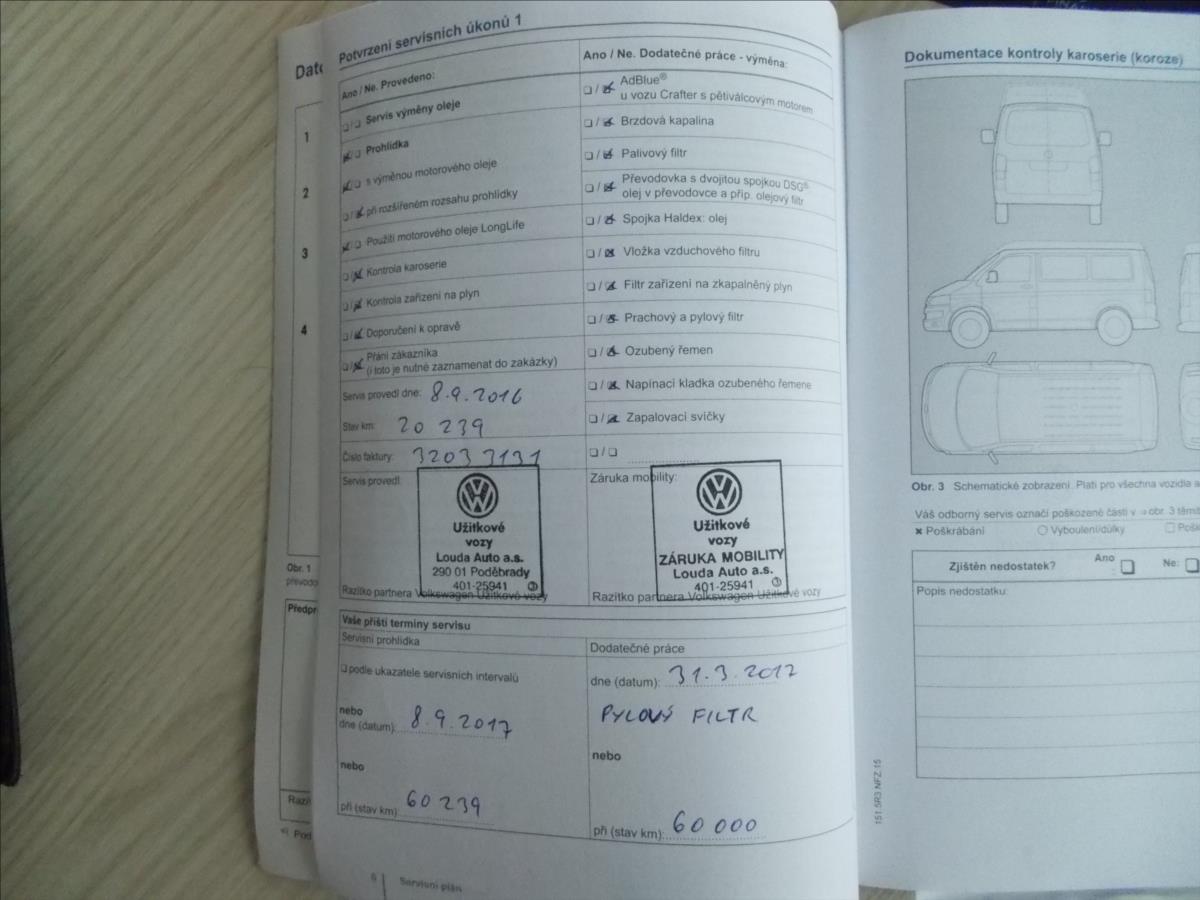 Date
1
2
3
4
Obr. 1
převodo
Předpr
Razít
Potvrzení servisních úkonů 1
Ano / Ne. Provedeno:
❑/❑ Servis výměny oleje
❑/❑ Prohlídka
❑/❑ s výměnou motorového oleje
❑/❑ při rozšířeném rozsahu prohlídky
❑/❑ Použití motorového oleje LongLife
❑/❑ Kontrola karoserie
❑/❑ Kontrola zařízení na plyn
❑/❑ Doporučení k opravě
❑/❑ Přání zákazníka
(i toto je nutné zaznamenat do zakázky)
Servis provedl dne: 8.9.2016
Stav km: 20 239
Číslo faktury: 32033131
Servis provedl:
Užitkové
vozy
Louda Auto a.s.
290 01 Poděbrady
401-25941 3
Razítko partnera Volkswagen Užitkové vozy
Ano / Ne. Dodatečné práce - výměna:
❑/❑ AdBlue®
u vozu Crafter s pětiválcovým motorem
❑/❑ Brzdová kapalina
❑/❑ Palivový filtr
❑/❑ Převodovka s dvojitou spojkou DSG®
olej v převodovce a příp. olejový filtr
❑/❑ Spojka Haldex: olej
❑/❑ Vložka vzduchového filtru
❑/❑ Filtr zařízení na zkapalněný plyn
❑/❑ Prachový a pylový filtr
❑/❑ Ozubený řemen
❑/❑ Napínací kladka ozubeného řemene
❑/❑ Zapalovací svíčky
❑/❑
Záruka mobility:
Užitkové
vozy
ZÁRUKA MOBILITY
Louda Auto a.s.
401-25941 3
Razítko partnera Volkswagen Užitkové vozy
Vaše příští termíny servisu
Servisní prohlídka
❑ podle ukazatele servisních intervalů
nebo
dne (datum): 8.9.2017
nebo
při (stav km): 60 239
Dodatečné práce
dne (datum): 31.3.2017
PYLOVÝ FILTR
nebo
při (stav km): 60 000
Servisní plán
Dokumentace kontroly karoserie (koroze)
Obr. 3 Schematické zobrazení. Platí pro všechna vozidla a
Váš odborný servis označí poškozené části v ⇒ obr. 3 těmit
✖ Poškrábání ○ Vybouleni/důlky ❑ Pošk
Zjištěn nedostatek? Ano : ❑ Ne: ❑
Popis nedostatku:
151.5R3.NFZ.15